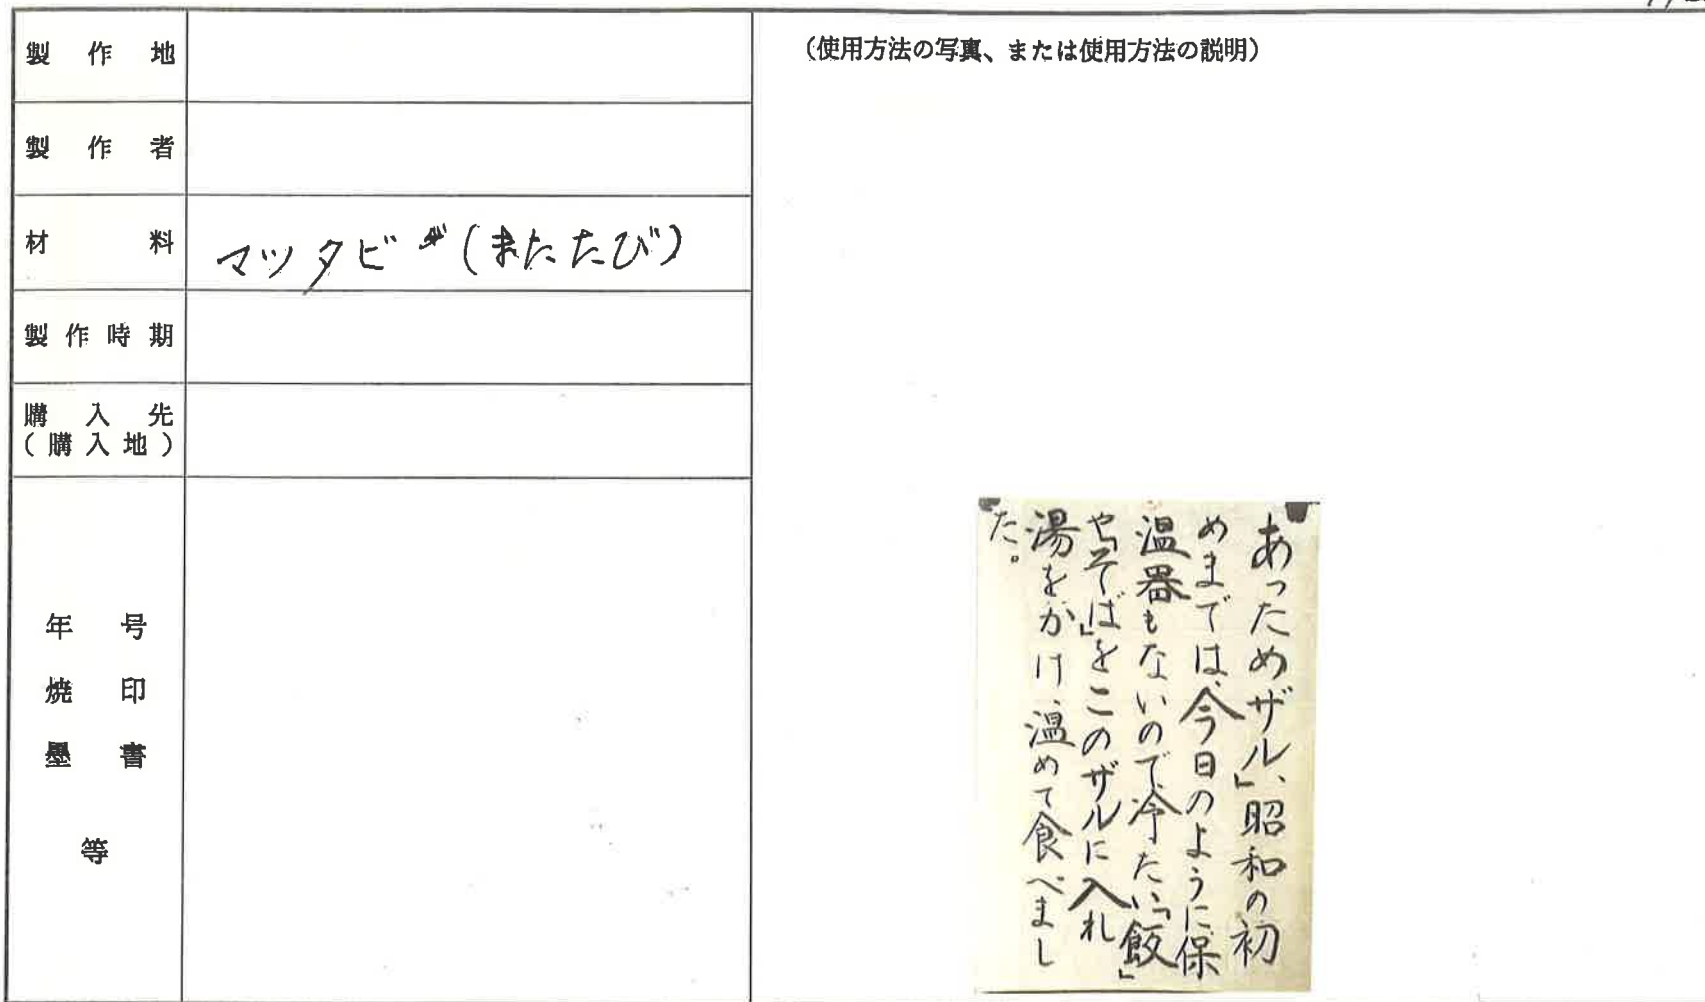 製作地
製作者
材料
マッタビ(またたび)
製作時期
購入先
(購入地)
年号
焼印
墨書
等
(使用方法の写真、または使用方法の説明)
あっためザル」、昭和の初
めまでは、今日のように保
温器もないので、冷たい「飯」
や「そば」をこのザルに入れ
湯をかけ、温めて食べまし
た。